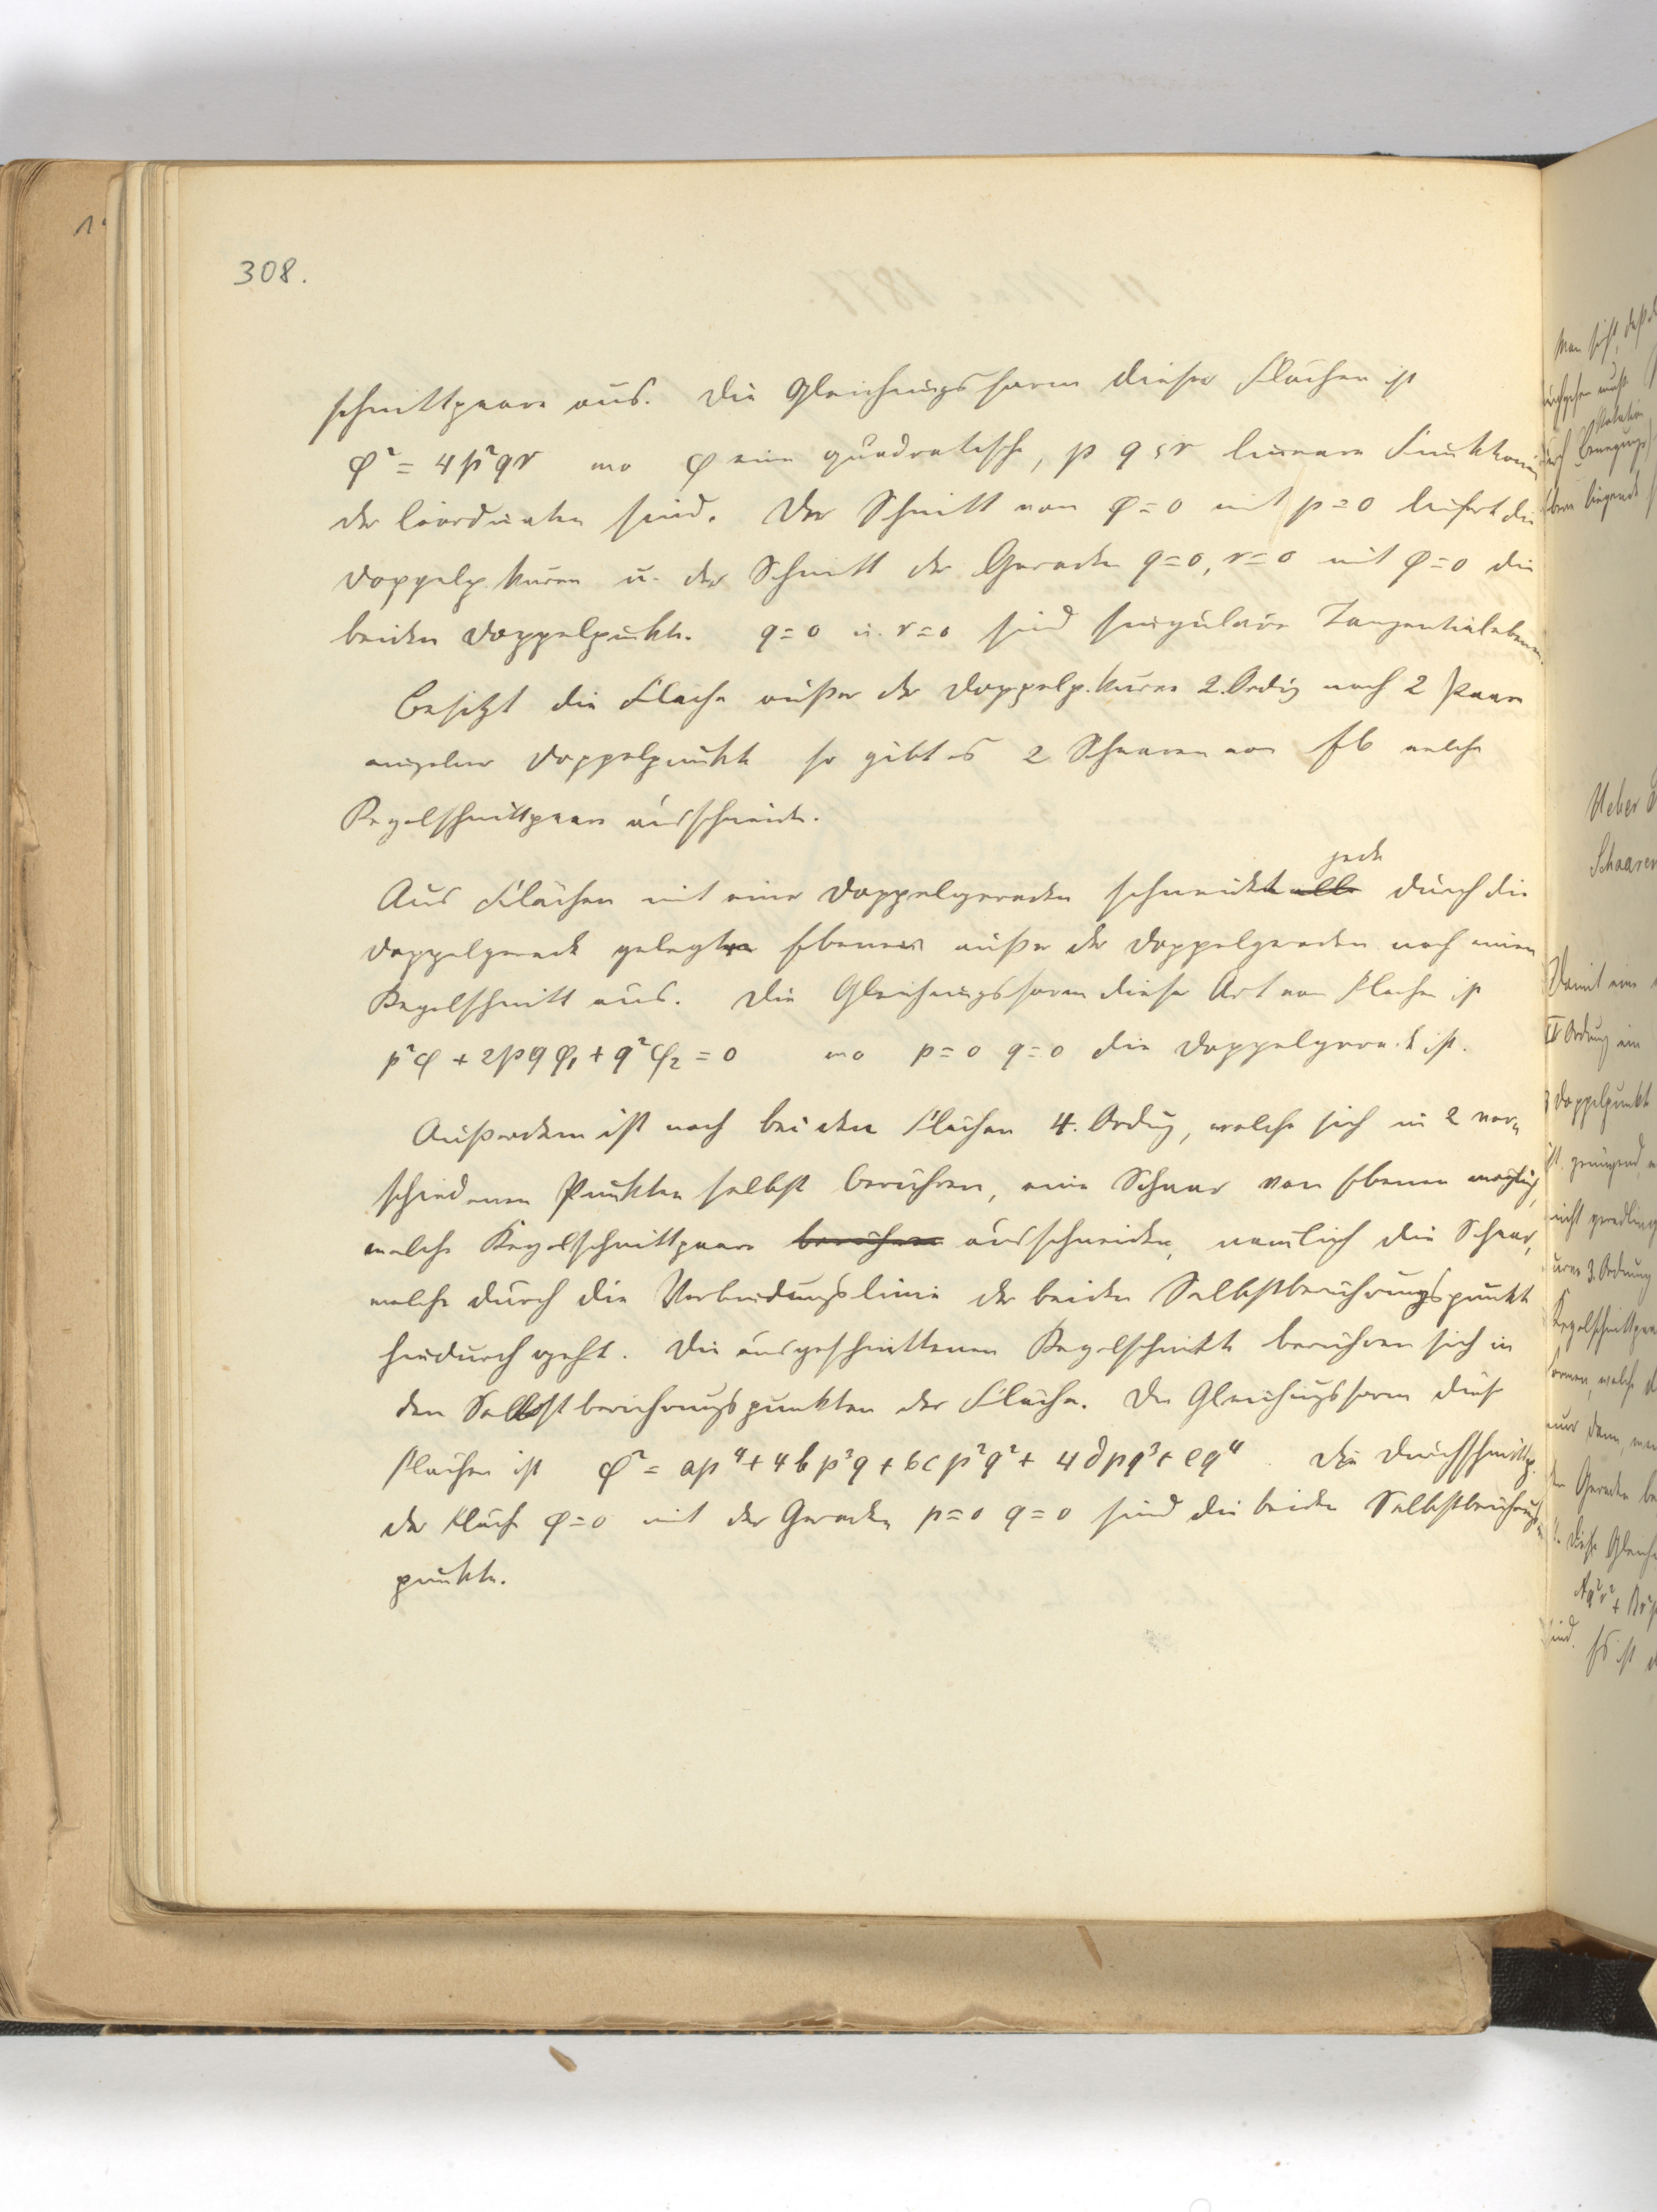 308.
schnittpaare aus. Die Gleichungsform dieser Flächen ist
φ² = 4p²qr wo φ eine quadratische, p q r lineare Funktionen
der Coordinaten sind. Der Schnitt von φ=0 mit p=0 liefert die
Doppelp.kurve u. der Schnitt der Geraden q=0, r=0 mit φ=0 die
beiden Doppelpunkte. q=0 u. r=0 sind singuläre Tangentialebenen.
Besitzt die Fläche außer der Doppelp.kurve 2. Ordng noch 2 Paare
einzelner Doppelpunkte so gibt es 2 Schaaren von Eb welche
Kegelschnittpaare ausschneiden.
jede
Aus Flächen mit einer Doppelgeraden schneidet alle durch die
Doppelgerade gelegte Ebene außer der Doppelgeraden noch einen
Kegelschnitt aus. Die Gleichungsform dieser Art von Flächen ist
p²φ + 2pqφ₁ + q²φ₂ = 0 wo p=0 q=0 die Doppelgerade ist.
Außerdem ist noch bei den Flächen 4. Ordng, welche sich in 2 ver-
schiedenen Punkten selbst berühren, eine Schaar von Ebenen möglich,
welche Kegelschnittpaare berühren ausschneiden, nämlich die Schaar,
welche durch die Verbindungslinie der beiden Selbstberührungspunkte
hindurch geht. Die ausgeschnittenen Kegelschnitte berühren sich in
den Selbstberührungspunkten der Fläche. Die Gleichungsform dieser
Flächen ist φ² = ap⁴ + 4bp³q + 6cp²q² + 4dpq³ + eq⁴. Die Durchschnittsp.
der Fläche φ=0 mit der Geraden p=0 q=0 sind die beiden Selbstberührungs-
punkte.
Man sieht, daß
Rotation
Ueber
Schaaren
Damit eine
II Ordnung ein
Doppelpunkt
ist. genügend,
nicht
3. Ordnung
Kegelschnittpaar
welche
nur dann, wenn
den Geraden
Diese Gleich
Aq²r² +
sind. Es ist